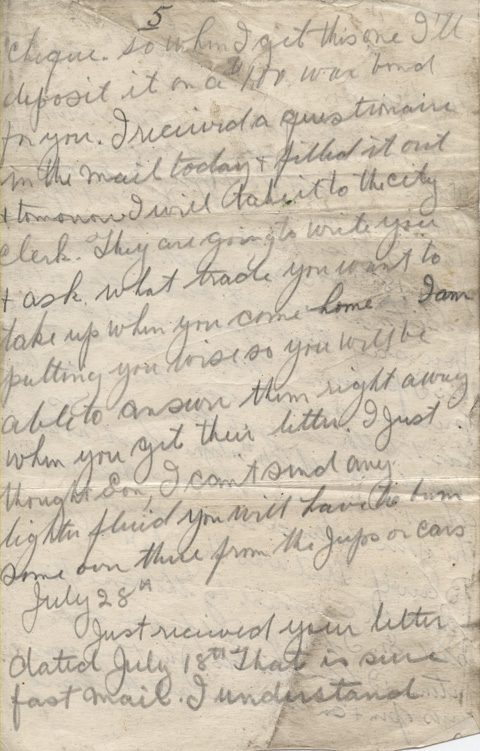 5
cheque. So when I get this one I'll
deposit it on a $100 war bond
for you. I received a questionaire
in the mail today + filled it out
+ tomorrow I will take it to the city
clerk. They are going to write you
+ ask what trade you want to
take up when you come home. I am
putting you wise so you will be
able to answer them right away
when you get their letter. I Just
thought Son, I can't send any
lighter fluid you will have to bum
some over there from the Jeeps or cars
July 28th
Just received your letter
dated July 18th That is sure
fast mail. I understand